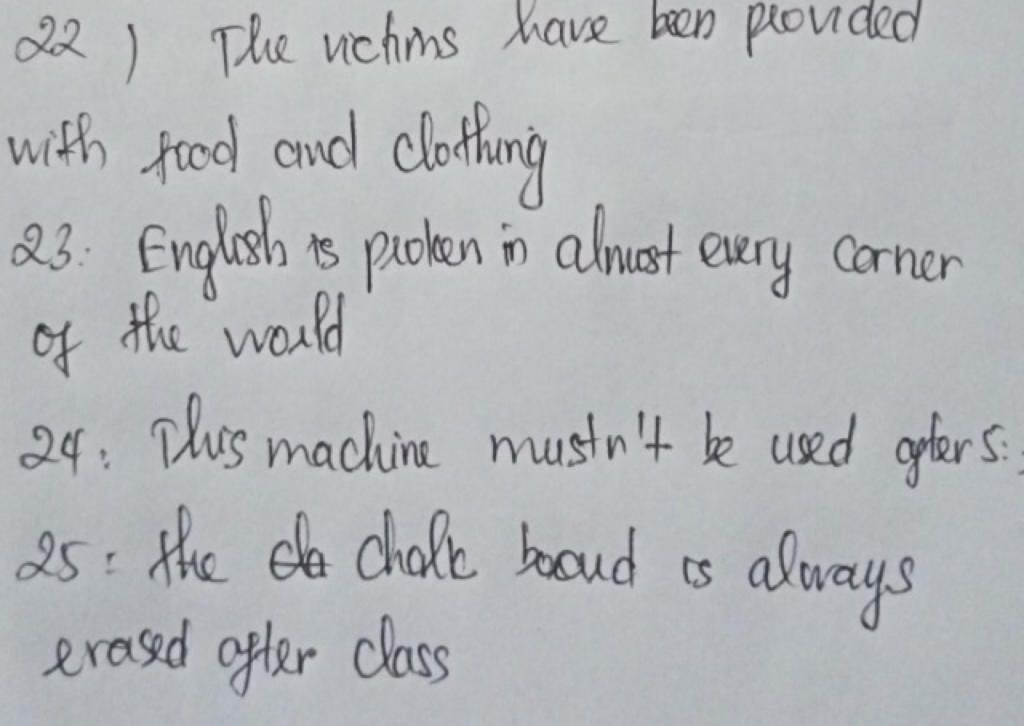 22 ) The victims have been provided
with food and clothing
23. English is proken in almost every corner
of the world
24. This machine mustn't be used after 5:
25: the chalk board is always
erased after class